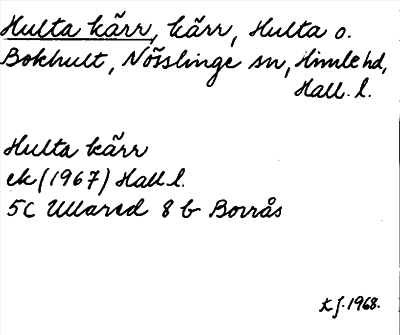 Hulta kärr, kärr, Hulta o.
Bokhult, Nösslinge sn, Himle hd,
Hall. l.
Hulta kärr
ek (1967) Hall l.
5C Ullared 8 b Borrås
t.j. 1968.